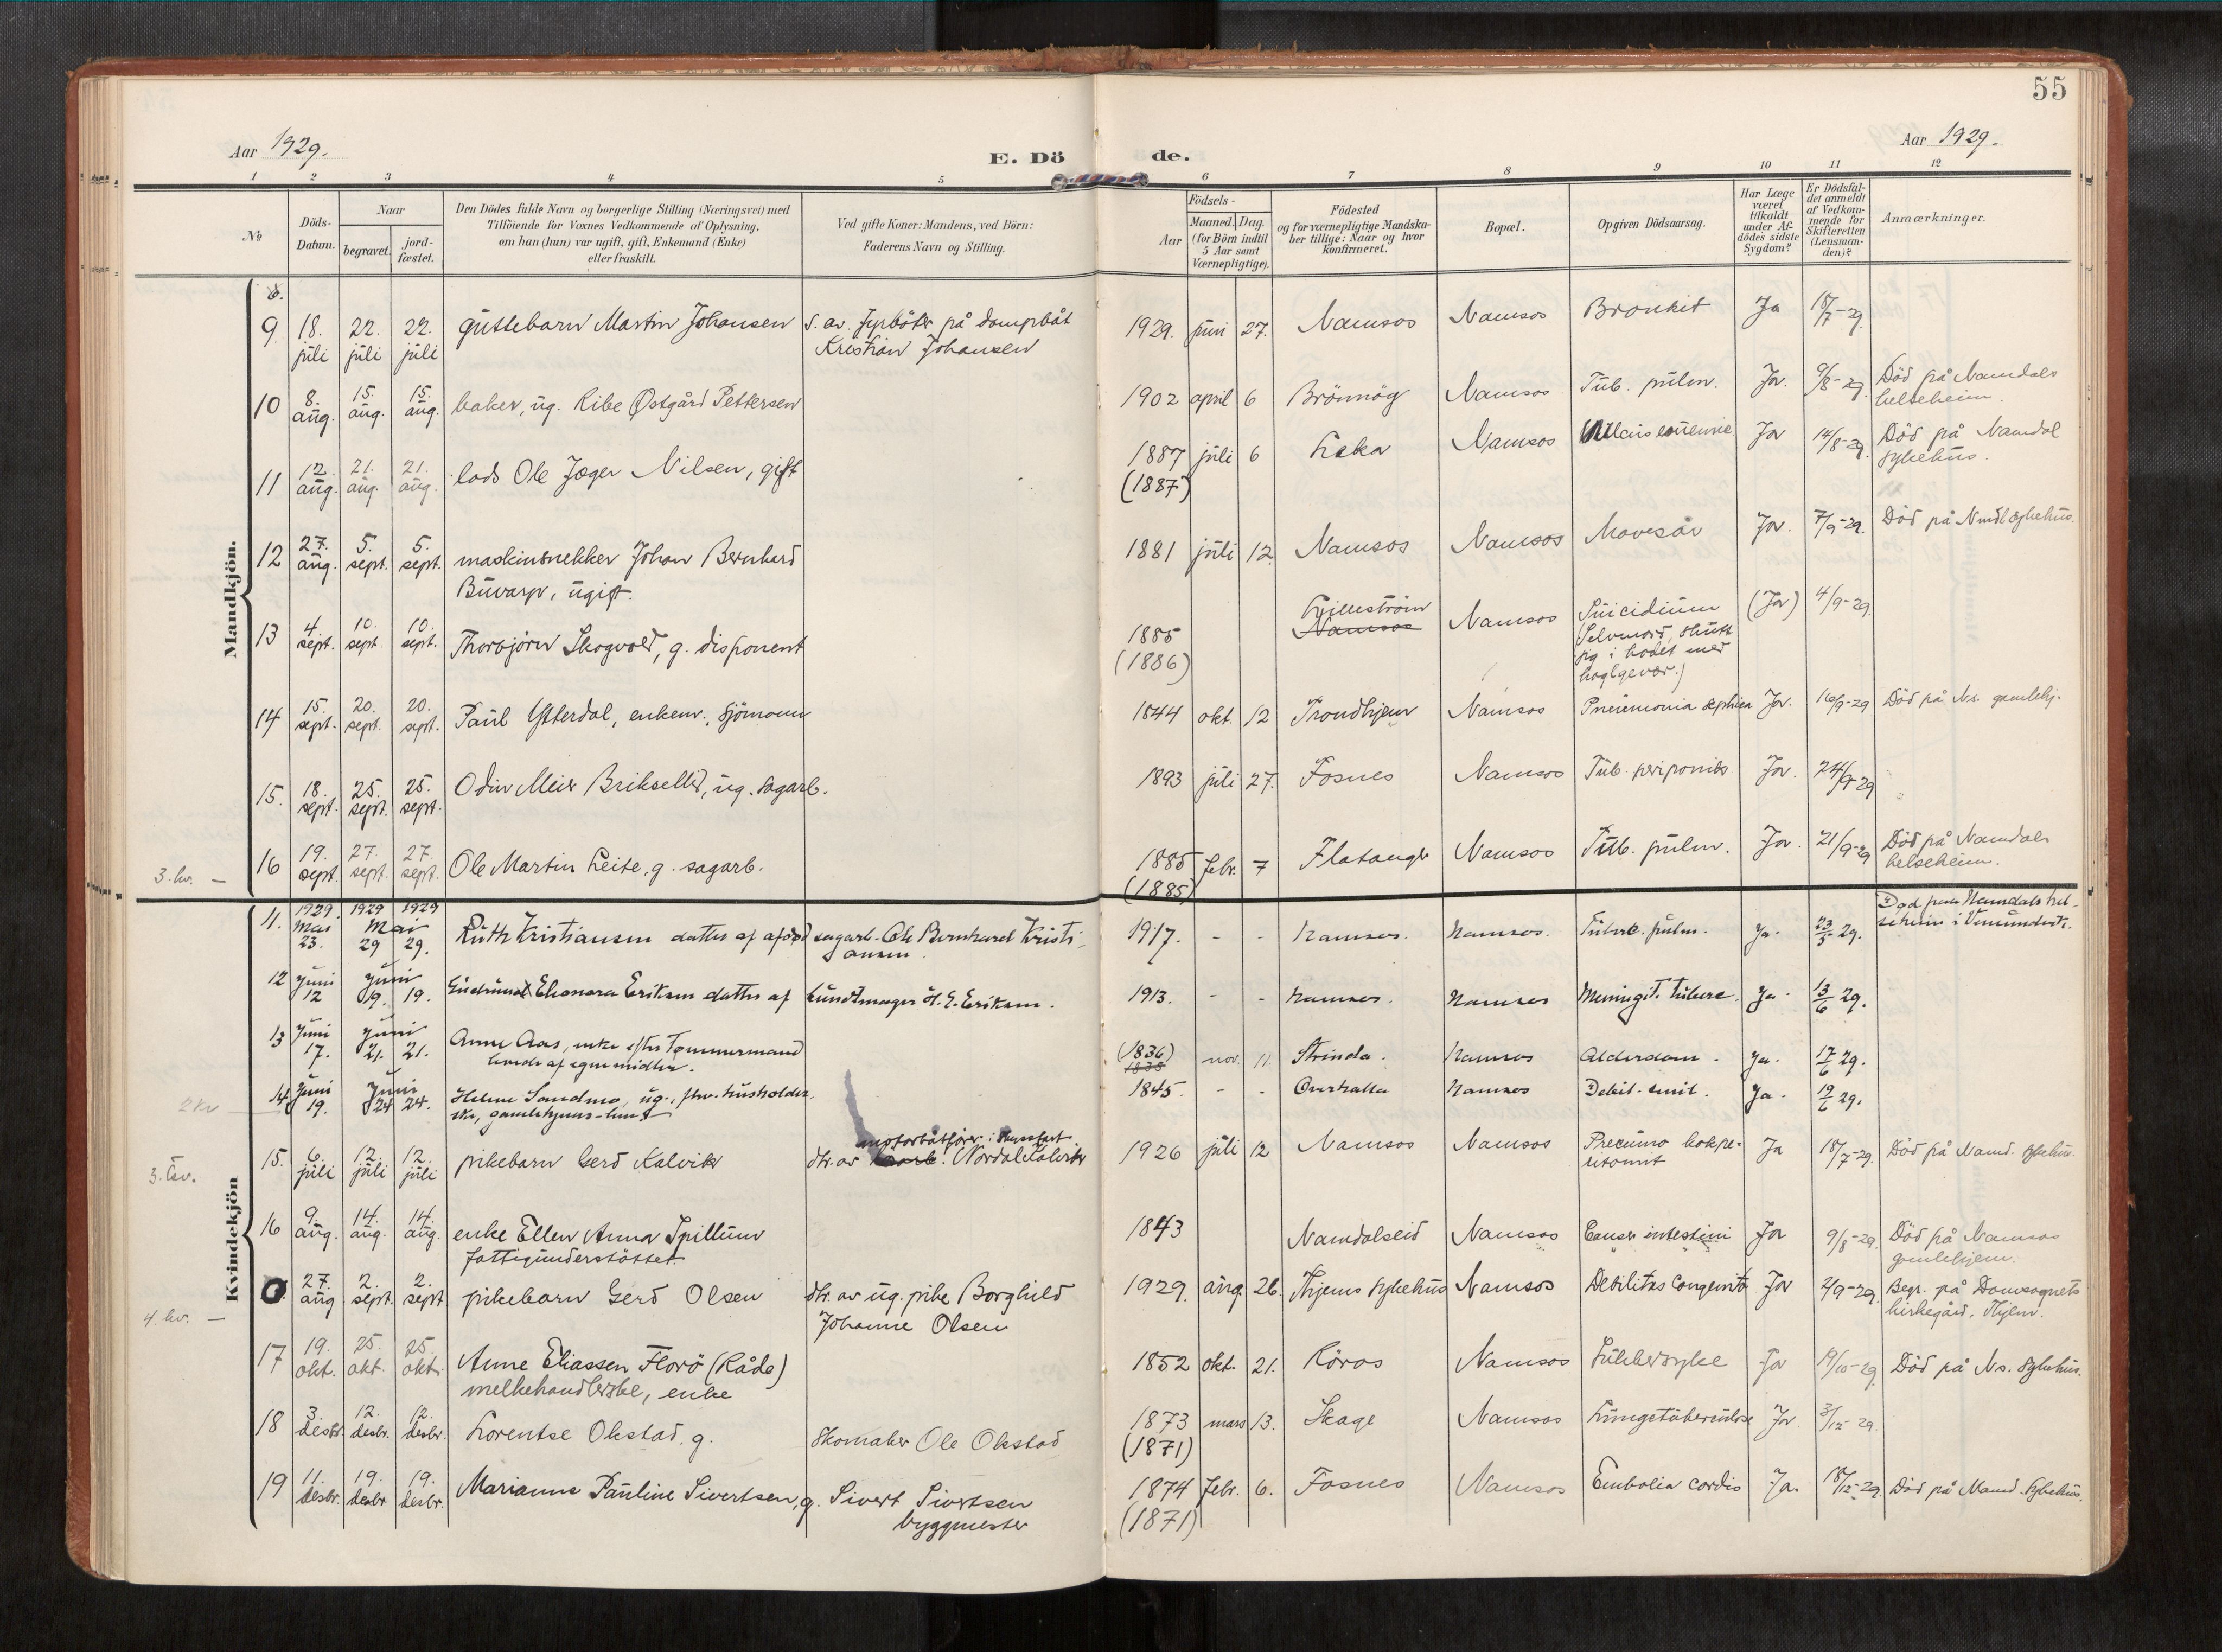 55
Aar 1929.
E. Dö de.
Aar 1929.
1 2 3 4 5 6 7 8 9 10 11 12
No
Döds-Datum.
Naar
begravet.
jordfæstet.
Den Dödes fulde Navn og borgerlige Stilling (Næringsvei) med
Tilföiende for Voxnes Vedkommende af Oplysning,
om han (hun) var ugift, gift, Enkemand (Enke)
eller fraskilt.
Ved gifte Koner: Mandens, ved Börn:
Faderens Navn og Stilling.
Födsels-
Aar
Maaned. Dag.
(for Börn indtil
5 Aar samt
Værnepligtige).
Födested
og for værnepligtige Mandska-
ber tillige: Naar og hvor
konfirmeret.
Bopæl.
Opgiven Dödsaarsag.
Har Læge
været
tilkaldt
under Af-
dödes sidste
Sygdom?
Er Dödsfal-
det anmeldt
af Vedkom-
mende for
Skifteretten
(Lensman-
den)?
Anmærkninger.
Mandkjön.
9 18. juli 22. juli 22. juli guttebarn Martin Johansen s. av. fyrböter på dampbåt
Kristian Johansen
1929. juni 27. Namsos Namsos Bronkit Ja 18/7-29
10 8. aug. 15. aug. 15. aug. baker, ug. Ribe Østgård Pettersen
1902 april 6 Brönnöy Namsos Tub. pulm. Ja. 9/8-29 Död på Namdals
helseheim.
11 12. aug. 21. aug. 21. aug. lods Ole Jæger Nilsen, gift
1887 juli 6 Leka Namsos Ja 14/8-29 Död på Namdal
(1887) sykehus.
12 27. aug. 5. sept. 5. sept. maskinsnekker Johan Bernhard
Buvarp, ugift.
1881 juli 12 Namsos Namsos Mavesår Ja. 7/9-29. Död på Namdl sykehus.
13 4 sept. 10. sept. 10. sept. Thorbjörn Skogvold, g. disponent
1885 Namsos Namsos Suicidium (Ja) 4/9-29
(1886) Selvmord, skutt
sig i hodet med
haglgevær.)
14 15. sept. 20. sept. 20. sept. Paul Ytterdal, enkem., sjömann
1844 okt. 12 Trondhjem Namsos Pneumonia Ja. 16/9-29 Död på Ns. gamlehj.
15. 18. sept. 25. sept. 25. sept. Odin Meier Briksellid, ug. sagarb.
1893 juli 27. Fosnes Namsos Tub. Ja. 24/9-29
3. kv. –
16 19. sept. 27. sept. 27. sept. Ole Martin Leite, g. sagarb.
1885 febr. 7 Flatanger Namsos Tub. pulm. Ja. 21/9-29 Död på Namdals
(1885) helseheim.
Kvindekjön
11. 1929 Mai 23. 1929 1929 Mai 29 29. Ruth Kristiansen datter af afdød sagarb. Ole Bernhard Kristi-
ansen
1917. - - Namsos. Namsos. Tuberc. pulm. Ja. 23/5 29. Død paa Namdals hel-
seheim i Vemundvik.
12 Juni 12 Juni 19. 19. Eleonora Eriksen datter af
1913. - - Namsos. Namsos Meningit. tuberc. Ja. 13/6 29.
13 Juni 17. Juni 21. 21. Anne Aas, enke efter Tømmermand
levede af egne midler.
(1836) 1835 nov. 11. Strinda. Namsos Alderdom. Ja. 17/6 29.
2 kv
14. Juni 19. Juni 24 24. Helene Sandmo, ug., fhv. husholder-
ske, gamlehjems-lem
1845. - - Overhalla Namsos Debil. senil. Ja. 19/6 29.
3. kv.
15. 6. juli 12. juli 12. juli pikebarn Gerd Kalvik dtr. av Nordal Kalvik
1926 juli 12 Namsos Namsos Ja 18/7-29. Död på Namd. sykehus.
16 9. aug. 14. aug. 14. aug. enke Ellen Anna Spillum
fattigunderstöttet
1843 Namdalseid Namsos Cancer intestini Ja 9/8-29. Död på Namsos
gamlehjem.
4. kv. –
0. 27. aug. 2. sept. 2. sept pikebarn Gerd Olsen dtr. av ug. pike Borghild
Johanne Olsen
1929. aug. 26. Thjems sykehus Namsos Debilitas congenita Ja 2/9-29. Begr. på Domsognets
kirkegård, Thjem.
17 19. okt. 25. okt. 25. okt. Anne Eliassen Florö (Råde)
melkehandlerske, enke
1852 okt. 21. Röros Namsos Sukkersyke Ja 19/10-29 Död på Ns. sykehus.
18 3. desbr. 12. desbr. 12. desbr. Lorentse Okstad, g. Skomaker Ole Okstad
1873 mars 13. Skage Namsos Lungetuberkulose Ja 3/12-29.
(1871)
19 11. desbr. 19. desbr 19. desbr. Marianne Pauline Sivertsen, g. Sivert Sivertsen
byggmester
1874 febr. 6. Fosnes Namsos Embolia cordis Ja. 18/12-29. Död på Namd. sykehus.
(1871)